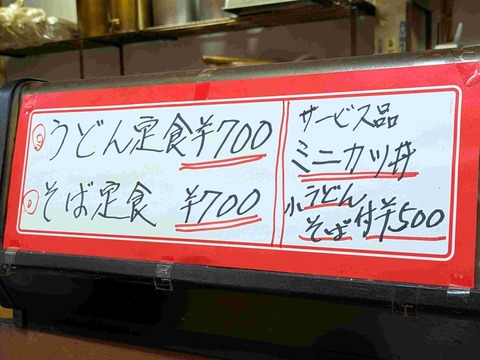 うどん定食¥700
D そば定食 ¥700
サービス品
ミニカツ丼
小うどん
そば付¥500